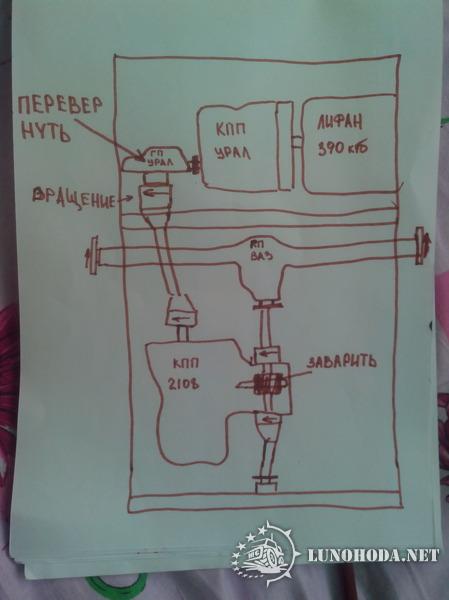 ПЕРЕВЕР
НУТЬ
ГП
УРАЛ
КПП
УРАЛ
ЛИФАН
390 куб
ВРАЩЕНИЕ
ВАЗ
КПП
2108
ЗАВАРИТЬ
LUNOHODA.NET